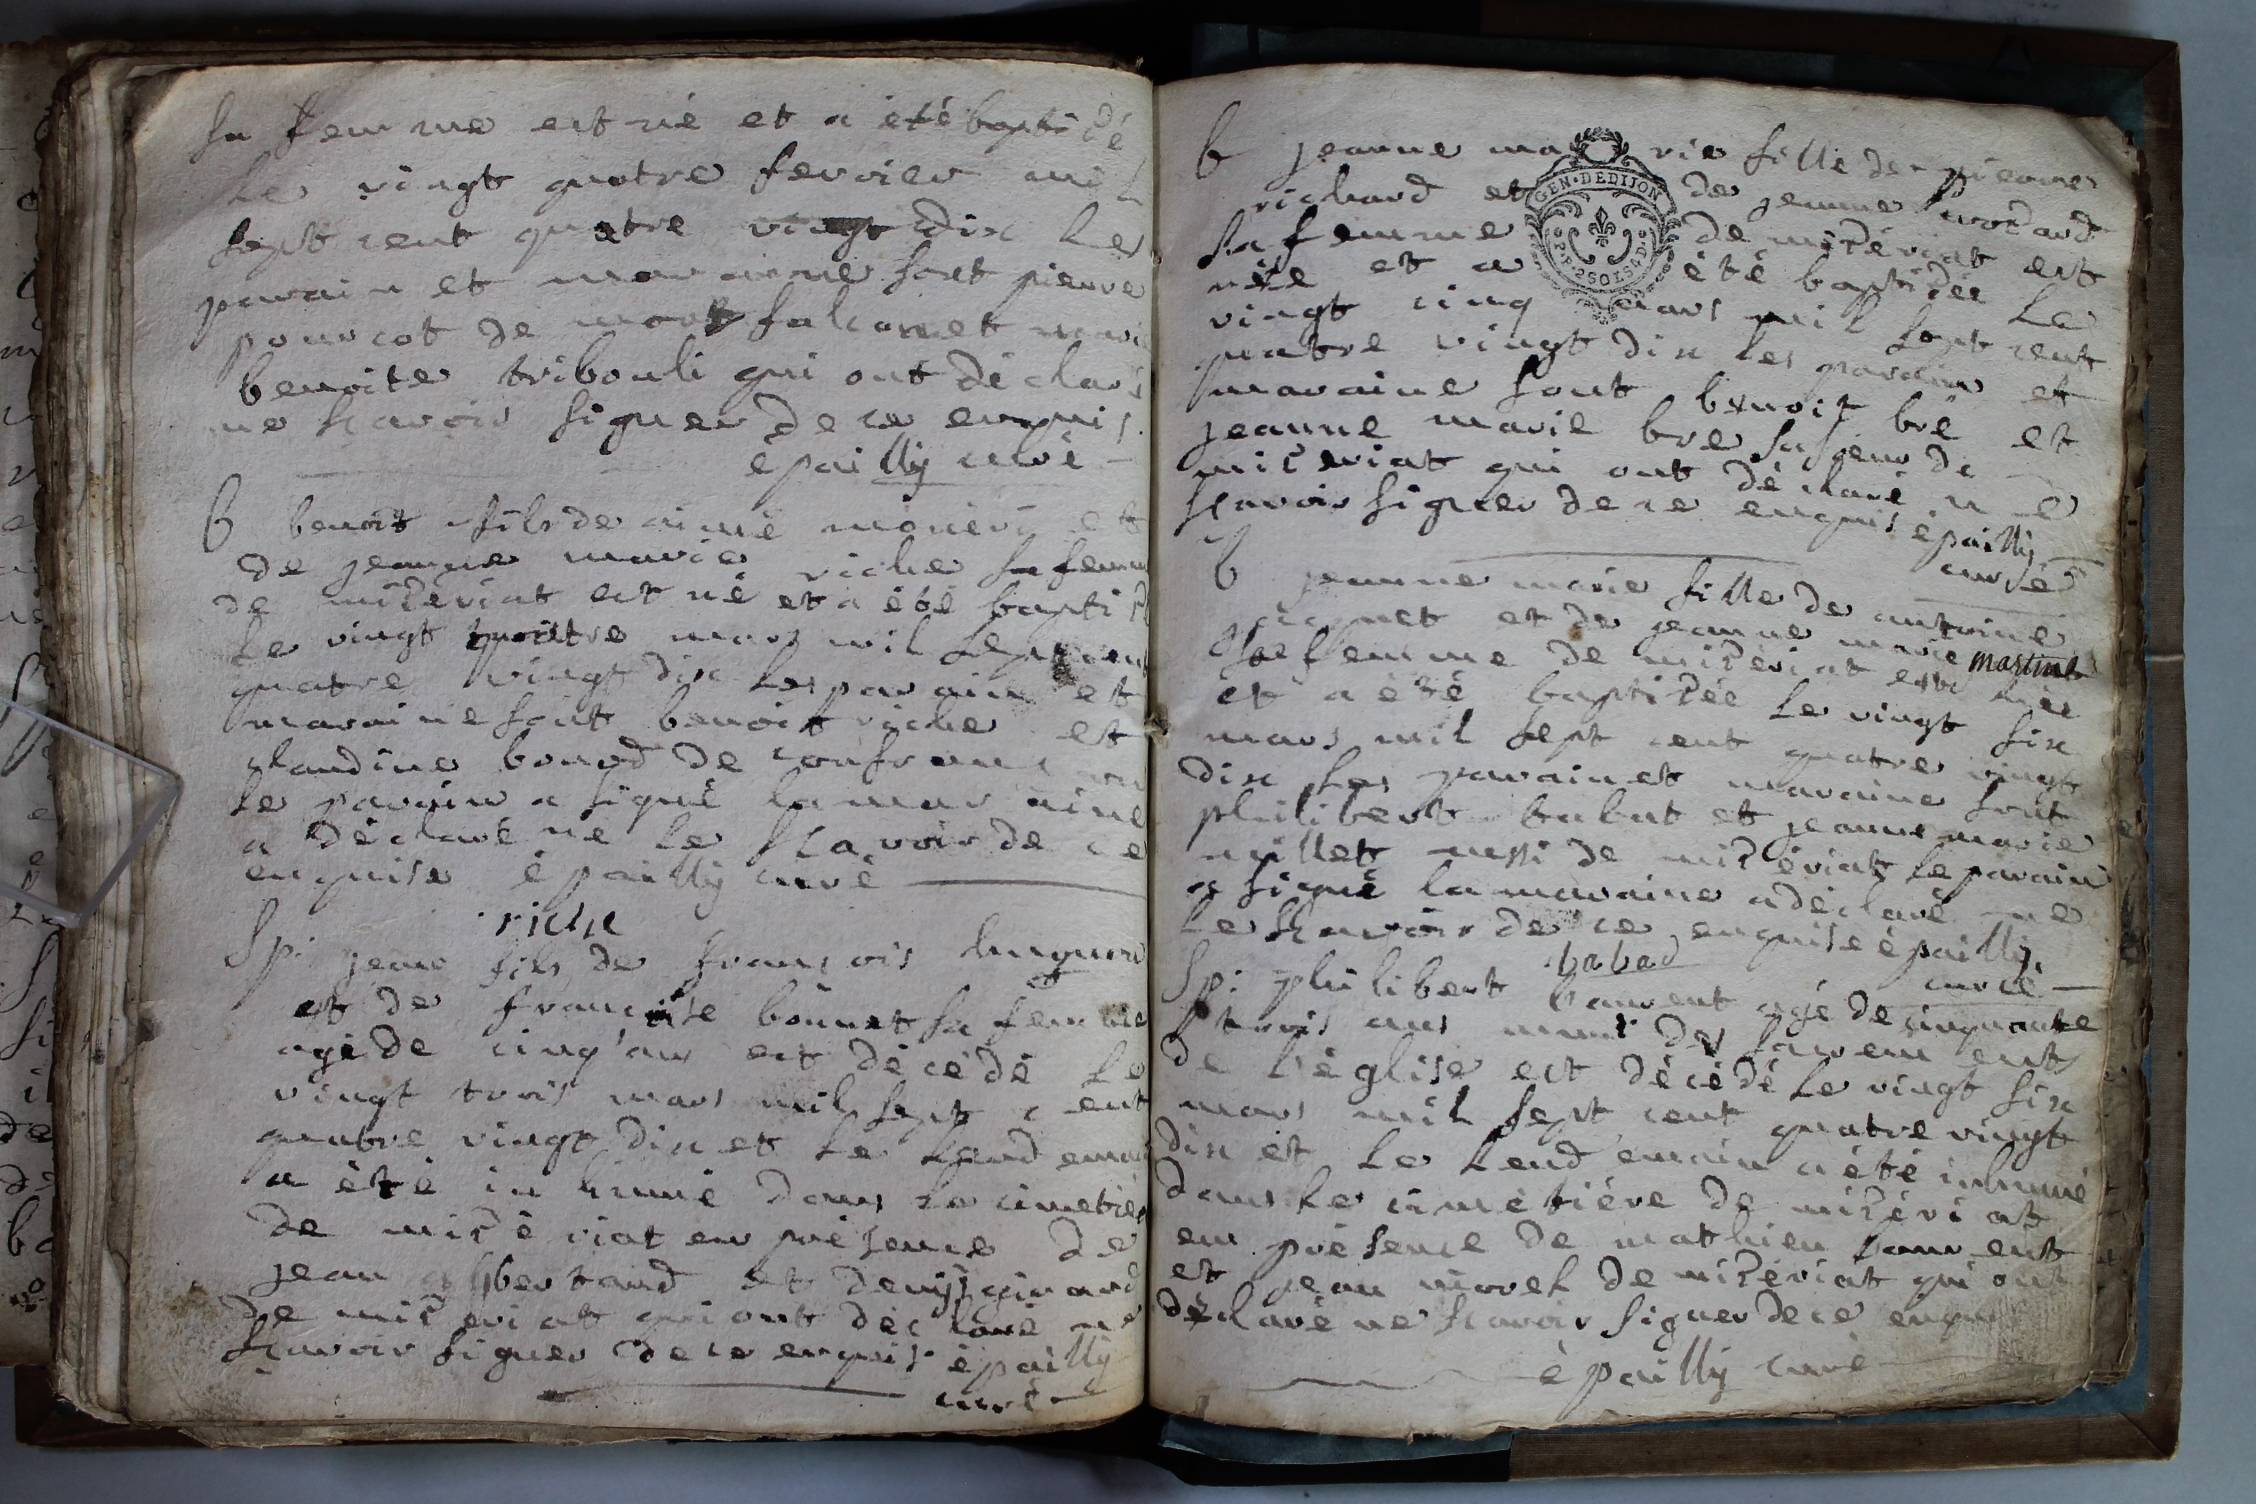 sa femme est né et a été baptisé
le vingt quatre fevrier mil
sept cent quatre vingt dix les
parain et maraine sont pierre
pourcot de montfalconet marie
benoite tribouli qui ont déclaré
ne sçavoir signer de ce enquis.
épailly curé
b benoit fils de aimé et
de jeanne marie riche sa femme
de miseriat est né et a été baptisé
le vingt quatre mars mil sept cent
quatre vingt dix les parain et
maraine sont benoit riche et
claudine de confrancon
le parain a signé la maraine
a déclaré ne le sçavoir de ce
enquise épailly curé
riche
Sp. jean fils de françois
et de françoise bonnet sa femme
agé de cinq ans est décédé le
vingt trois mars mil sept cent
quatre vingt dix et le lendemain
a été inhumé dans le cimetière
de misériat en présence de
jean et denys
de miseriat qui ont déclaré ne
sçavoir signer de ce enquis épailly
curé
b jeanne marie fille de pierre
richard et de jeanne
sa femme de misériat est
née et a été baptisée le
vingt cinq mars mil sept cent
quatre vingt dix les parain et
maraine sont benoit bré et
jeanne marie bre sa sœur de
miseriat qui ont déclaré ne
sçavoir signer de ce enquis épailly
curé
GEN·DEDIJON
P·P·2SOLS4D
b jeanne marie fille de antoine
et de jeanne marie martinet
sa femme de misériat est née
et a été baptisée le vingt six
mars mil sept cent quatre vingt
dix les parain et maraine sont
philibert et jeanne marie
millet aussi de misériat le parain
a signé la maraine a déclaré ne
le sçavoir de ce enquise épailly
babad curé
Sp. philibert laurent agé de cinquante
trois ans muni des sacrement
de l'église est décédé le vingt six
mars mil sept cent quatre vingt
dix et le lendemain a été inhumé
dans le cimétiére de misériat
en présence de mathieu laurent
et jean morel de misériat qui ont
déclaré ne sçavoir signer de ce enquis
épailly curé